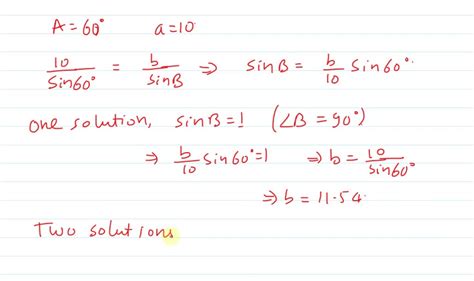 A = 60° a = 10
10/sin60° = b/sinB ⇒ sinB = b/10 sin60°.
One solution, sinB = 1 (∠B = 90°)
⇒ b/10 sin60° = 1 ⇒ b = 10/sin60°
⇒ b = 11.54.
Two solutions